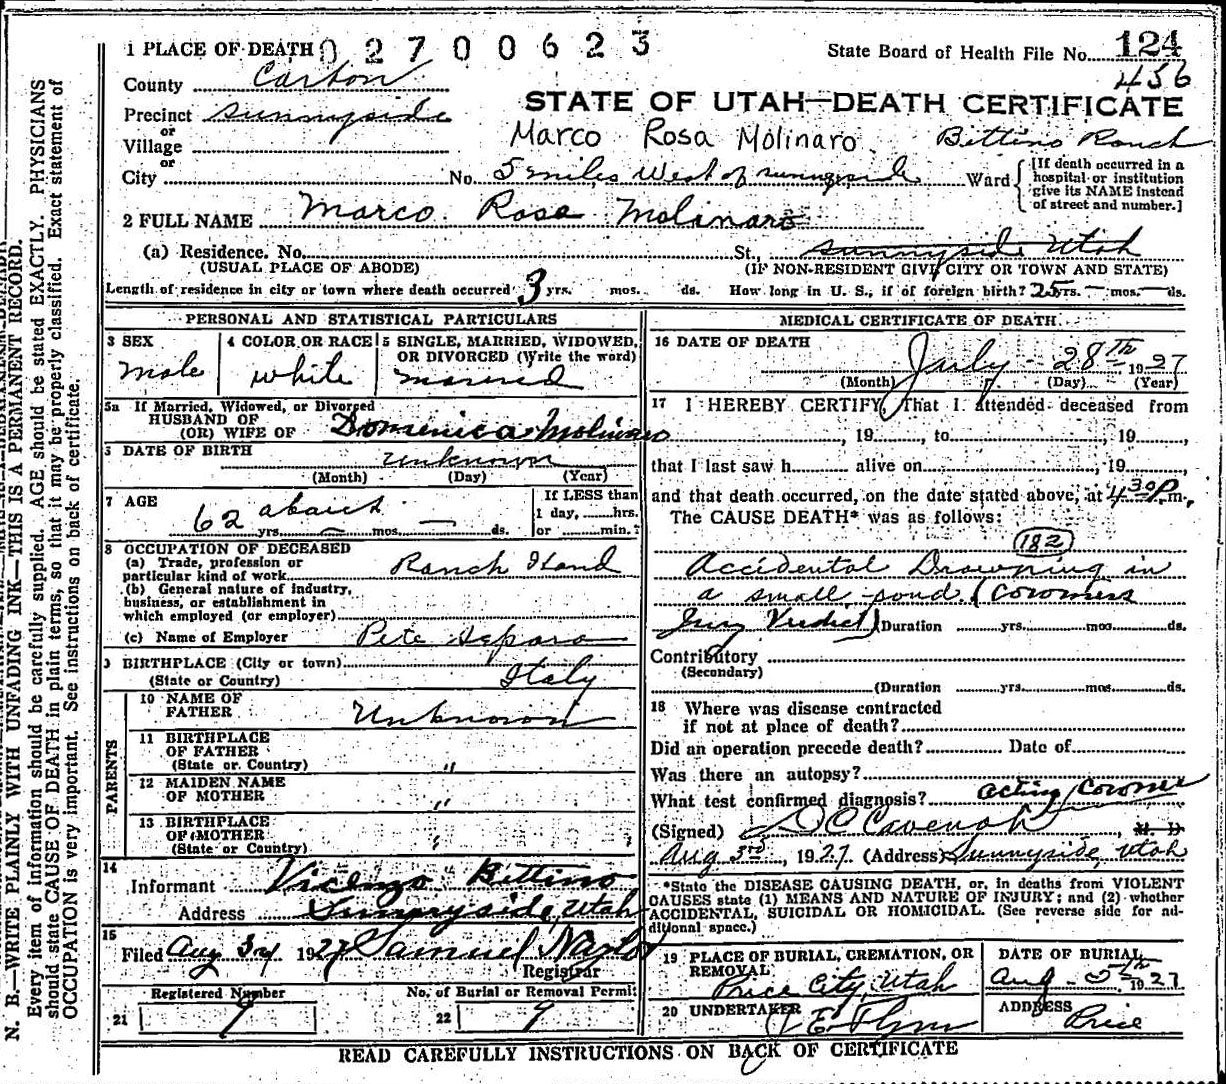 1 PLACE OF DEATH 02700623 State Board of Health File No. 124
456
County Carbon
STATE OF UTAH—DEATH CERTIFICATE
Precinct Sunnyside
or
Marco Rosa Molinaro. Bittino Ranch
Village
or
City No. 5 miles West of Sunnyside Ward
[If death occurred in a
hospital or institution
give its NAME instead
of street and number.]
2 FULL NAME Marco Rosa Molinaro
(a) Residence. No. St., Sunnyside Utah
(USUAL PLACE OF ABODE) (IF NON-RESIDENT GIVE CITY OR TOWN AND STATE)
Length of residence in city or town where death occurred 3 yrs. mos. ds. How long in U. S., if of foreign birth? 25 yrs. — mos. — ds.
PERSONAL AND STATISTICAL PARTICULARS
3 SEX
Male
4 COLOR OR RACE
White
5 SINGLE, MARRIED, WIDOWED,
OR DIVORCED (Write the word)
Married
5a If Married, Widowed, or Divorced
HUSBAND OF
(OR) WIFE OF Domenica Molinaro
6 DATE OF BIRTH
unknown
(Month) (Day) (Year)
7 AGE
62 about yrs. — mos. — ds.
If LESS than
1 day, hrs.
or min.?
8 OCCUPATION OF DECEASED
(a) Trade, profession or
particular kind of work Ranch Hand
(b) General nature of industry,
business, or establishment in
which employed (or employer)
(c) Name of Employer Pete
9 BIRTHPLACE (City or town)
(State or Country) Italy
PARENTS
10 NAME OF
FATHER Unknown
11 BIRTHPLACE
OF FATHER
(State or Country) "
12 MAIDEN NAME
OF MOTHER "
13 BIRTHPLACE
OF MOTHER
(State or Country) "
14
Informant Vicenzo Bittino
Address Sunnyside, Utah
15
Filed Aug 3rd 1927 Samuel Naylor
Registrar
Registered Number
21 9
No. of Burial or Removal Permit
22 9
MEDICAL CERTIFICATE OF DEATH
16 DATE OF DEATH
July - 28th 1927
(Month) (Day) (Year)
17 I HEREBY CERTIFY, That I attended deceased from
, 19 , to , 19 ,
that I last saw h alive on , 19
and that death occurred, on the date stated above, at 4 30 P m.
The CAUSE DEATH* was as follows:
182
Accidental Drowning in
a small pond. (Coroners
Jury Verdict) (Duration yrs. mos. ds.
Contributory
(Secondary)
(Duration yrs. mos. ds.
18 Where was disease contracted
if not at place of death?
Did an operation precede death? Date of
Was there an autopsy?
What test confirmed diagnosis? acting Coroner
(Signed) D C Cavenah, M. D
Aug 3rd, 1927. (Address) Sunnyside, Utah
*State the DISEASE CAUSING DEATH, or, in deaths from VIOLENT
CAUSES state (1) MEANS AND NATURE OF INJURY; and (2) whether
ACCIDENTAL, SUICIDAL OR HOMICIDAL. (See reverse side for ad-
ditional space.)
19 PLACE OF BURIAL, CREMATION, OR
REMOVAL
Price City, Utah
DATE OF BURIAL
Aug - 5th 1927
20 UNDERTAKER
Flynn
ADDRESS
Price
READ CAREFULLY INSTRUCTIONS ON BACK OF CERTIFICATE
N. B.—WRITE PLAINLY WITH UNFADING INK—THIS IS A PERMANENT RECORD.
Every item of information should be carefully supplied. AGE should be stated EXACTLY. PHYSICIANS
should state CAUSE OF DEATH in plain terms, so that it may be properly classified. Exact statement of
OCCUPATION is very important. See instructions on back of certificate.